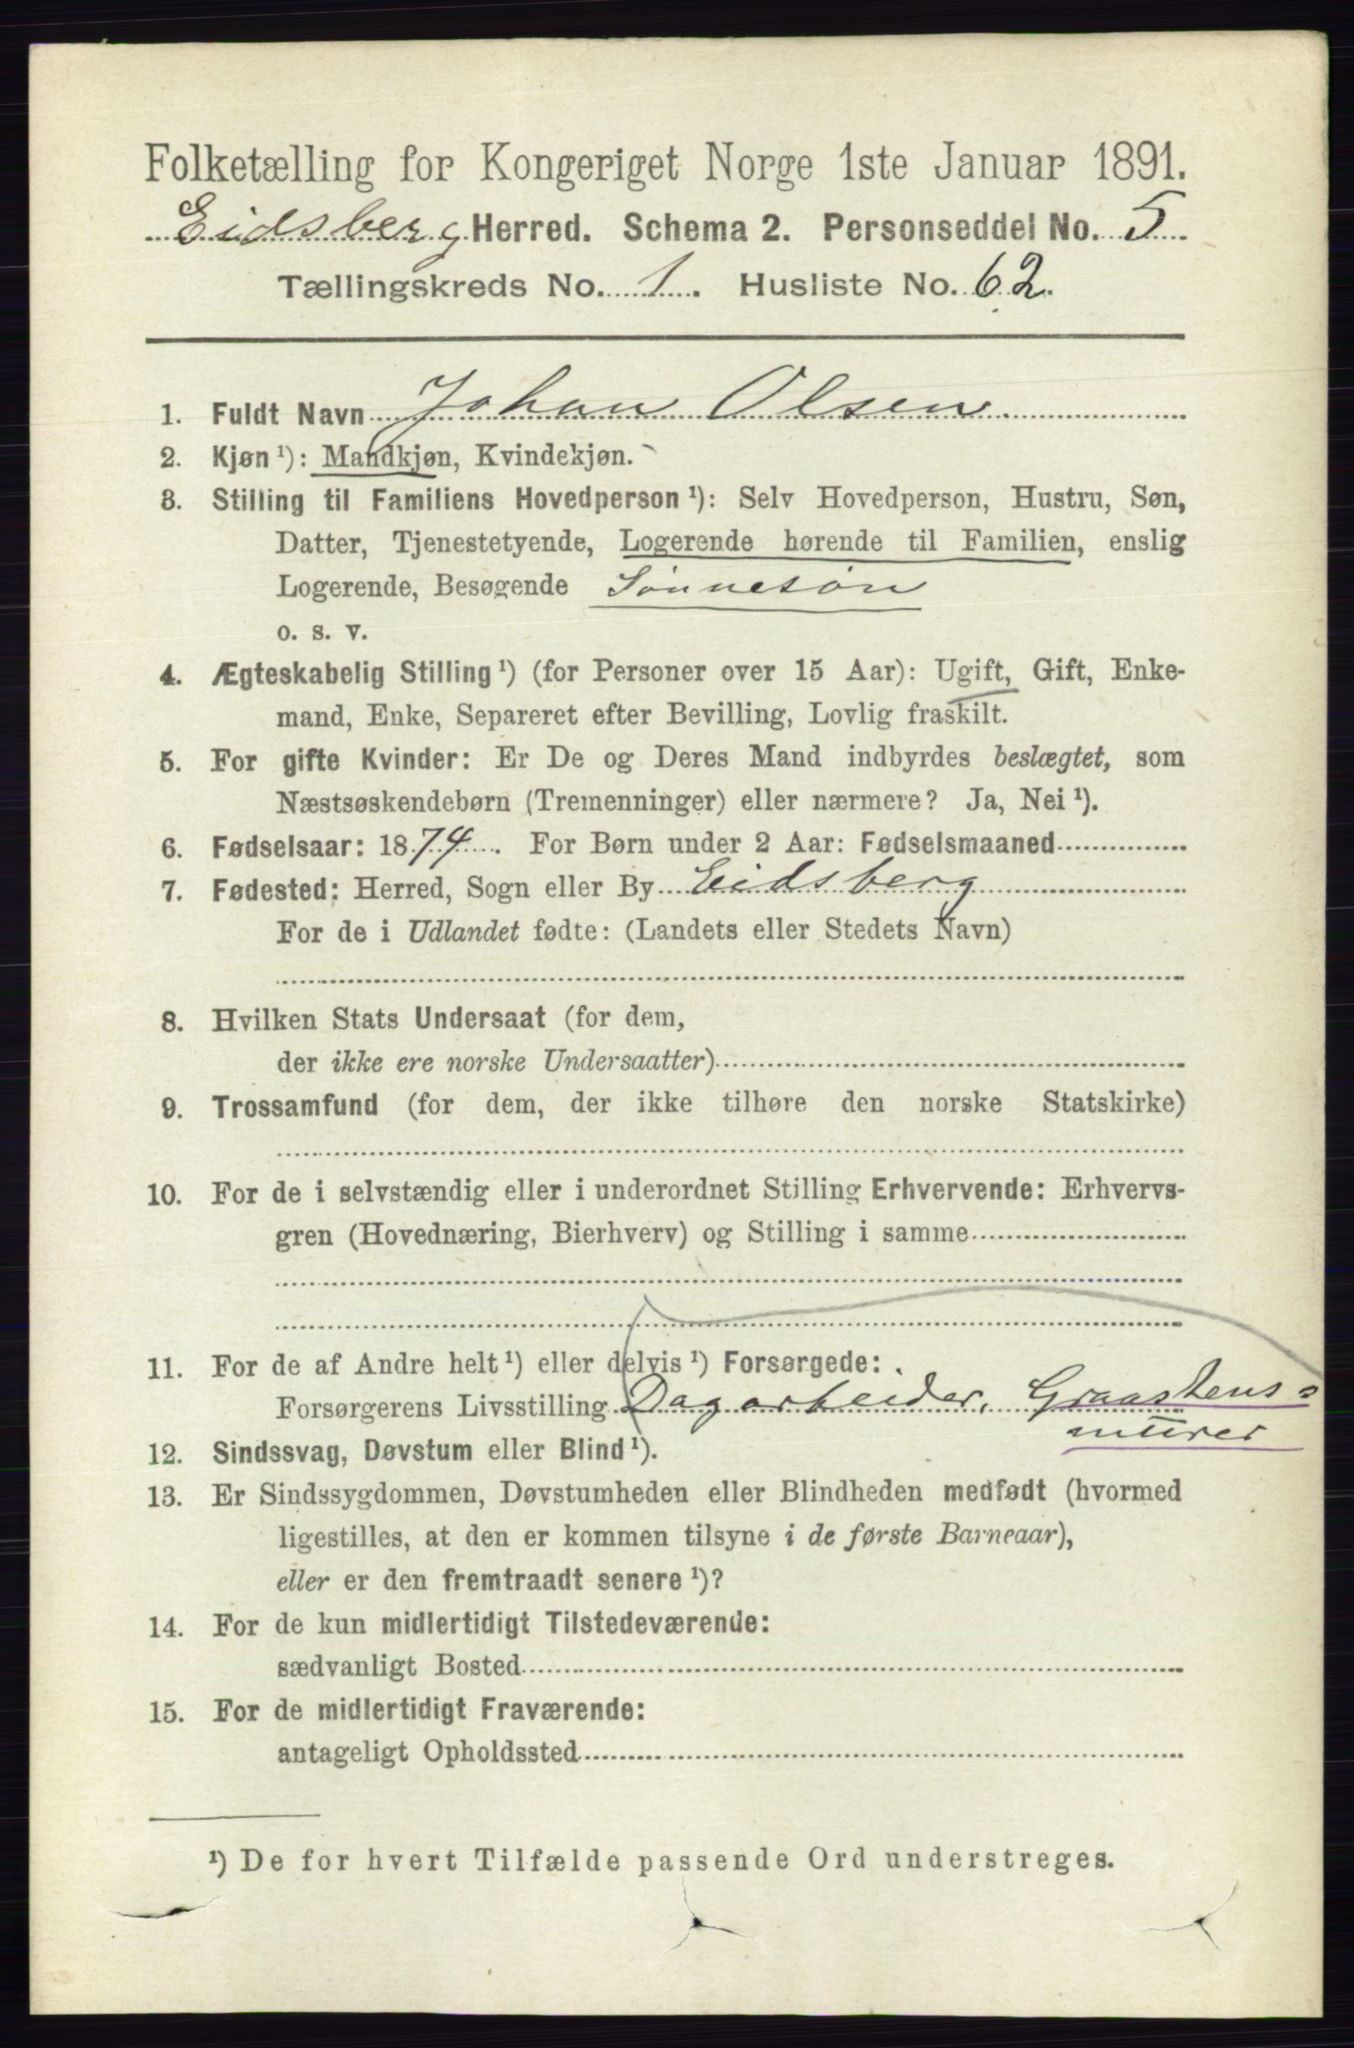 Folketælling for Kongeriget Norge 1ste Januar 1891.
Eidsberg Herred. Schema 2. Personseddel No. 5
Tællingskreds No. 1. Husliste No. 62.
1. Fuldt Navn Johan Olsen
2. Kjøn ¹): Mandkjøn, Kvindekjøn.
3. Stilling til Familiens Hovedperson ¹): Selv Hovedperson, Hustru, Søn,
Datter, Tjenestetyende, Logerende hørende til Familien, enslig
Logerende, Besøgende Sønnesøn
o. s. v.
4. Ægteskabelig Stilling ¹) (for Personer over 15 Aar): Ugift, Gift, Enke-
mand, Enke, Separeret efter Bevilling, Lovlig fraskilt.
5. For gifte Kvinder: Er De og Deres Mand indbyrdes beslægtet, som
Næstsøskendebørn (Tremenninger) eller nærmere? Ja, Nei ¹).
6. Fødselsaar: 1874. For Børn under 2 Aar: Fødselsmaaned
7. Fødested: Herred, Sogn eller By Eidsberg
For de i Udlandet fødte: (Landets eller Stedets Navn)
8. Hvilken Stats Undersaat (for dem,
der ikke ere norske Undersaatter)
9. Trossamfund (for dem, der ikke tilhøre den norske Statskirke)
10. For de i selvstændig eller i underordnet Stilling Erhvervende: Erhvervs-
gren (Hovednæring, Bierhverv) og Stilling i samme
11. For de af Andre helt ¹) eller delvis ¹) Forsørgede:
Forsørgerens Livsstilling Dagarbeider, Graastens=
murer
12. Sindssvag, Døvstum eller Blind ¹).
13. Er Sindssygdommen, Døvstumheden eller Blindheden medfødt (hvormed
ligestilles, at den er kommen tilsyne i de første Barneaar),
eller er den fremtraadt senere ¹)?
14. For de kun midlertidigt Tilstedeværende:
sædvanligt Bosted
15. For de midlertidigt Fraværende:
antageligt Opholdssted
¹) De for hvert Tilfælde passende Ord understreges.